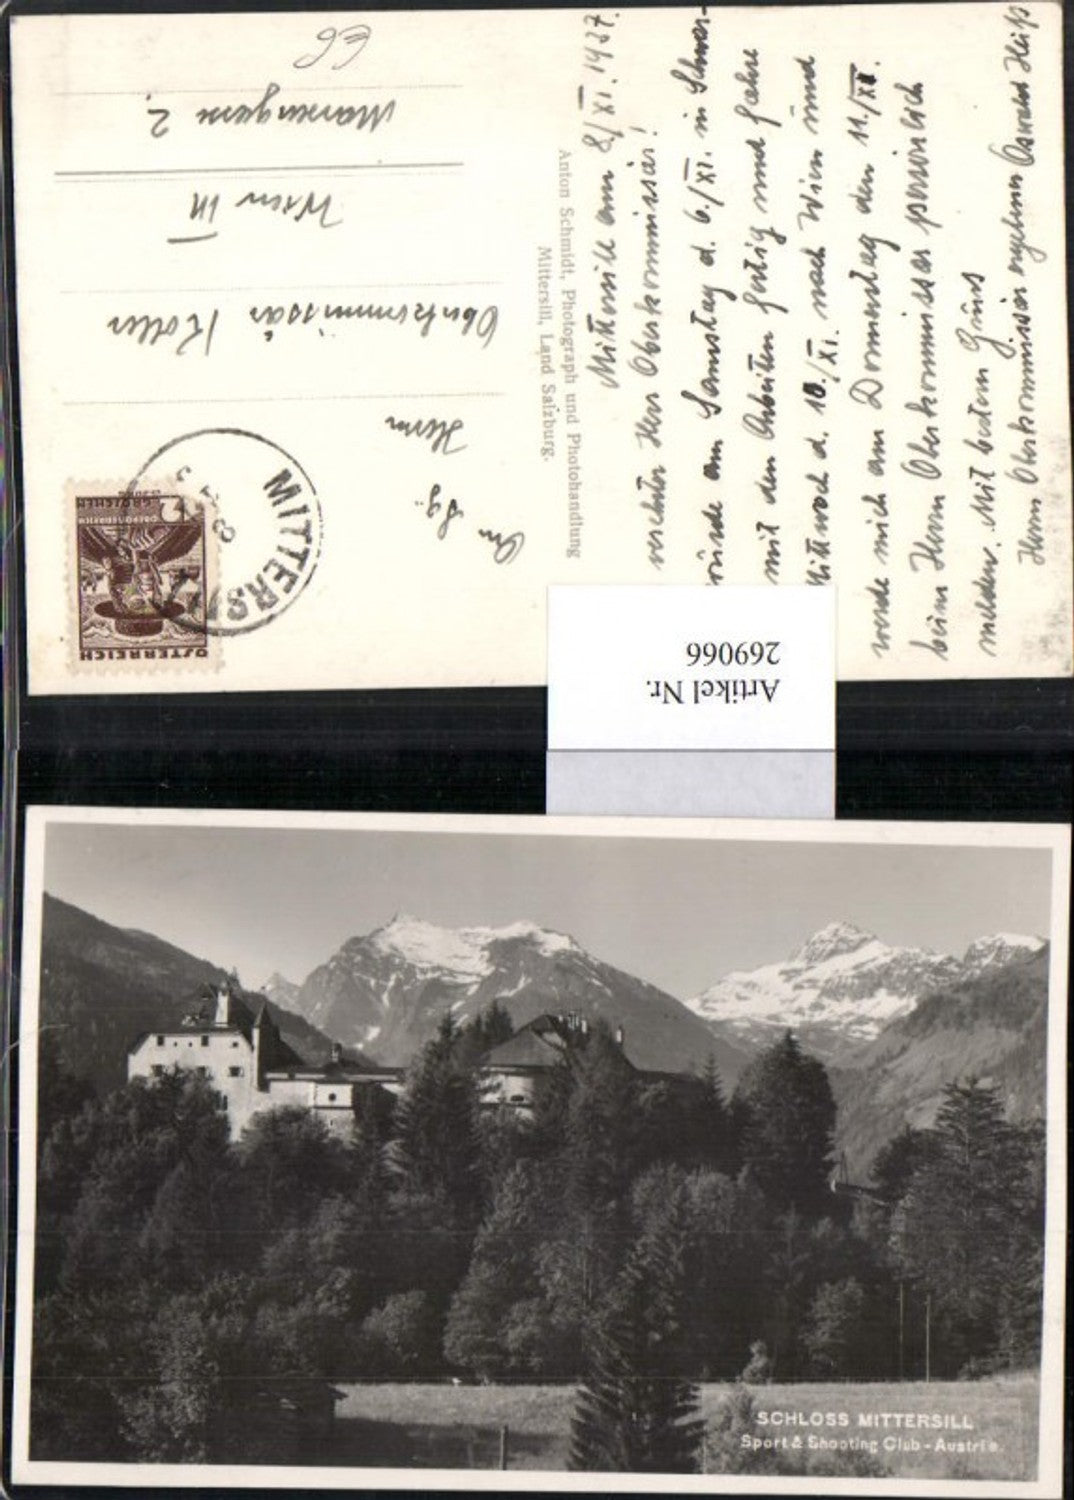 Mittersill am 8./XI. 1937.
verehrter Herr Oberkommissär!
am Samstag d. 6./XI. in Schwer-
mit den Arbeiten fertig und fahre
Mittwoch d. 10./XI. nach Wien und
werde mich am Donnerstag den 11./XI.
beim Herrn Oberkommissär persönlich
melden. Mit besten Gruss
Herrn Oberkommissär Oswald
Anton Schmidt, Photograph und Photohandlung
Mittersill, Land Salzburg.
An Sg.
Herrn
Oberkommissär
Wien III
2.
ÖSTERREICH
GROSCHEN
MITTERSILL
Artikel Nr.
269066
SCHLOSS MITTERSILL
Sport & Shooting Club - Austria.